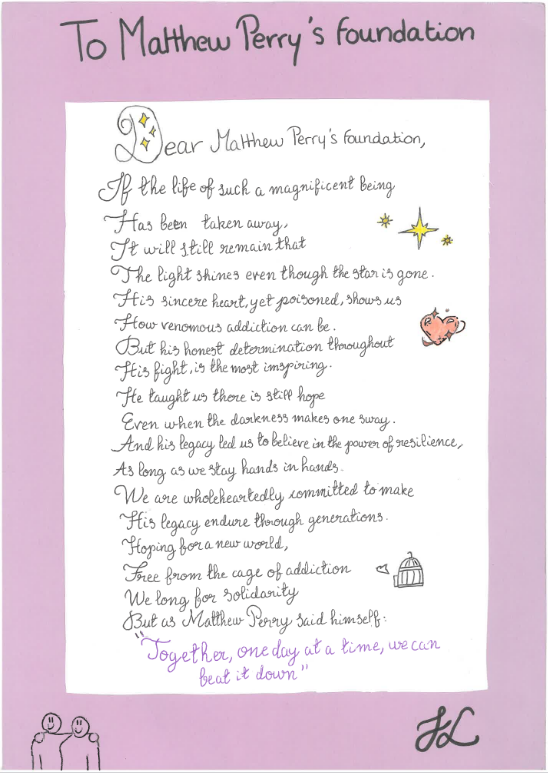 To Matthew Perry's foundation
Dear Matthew Perry's foundation,
If the life of such a magnificent being
Has been taken away,
It will still remain that
The light shines even though the star is gone.
His sincere heart, yet poisoned, shows us
How venomous addiction can be.
But his honest determination throughout
His fight, is the most inspiring.
He taught us there is still hope
Even when the darkness makes one sway.
And his legacy led us to believe in the power of resilience,
As long as we stay hands in hands.
We are wholeheartedly committed to make
His legacy endure through generations.
Hoping for a new world,
Free from the cage of addiction
We long for solidarity
But as Matthew Perry said himself:
"Together, one day at a time, we can
beat it down"